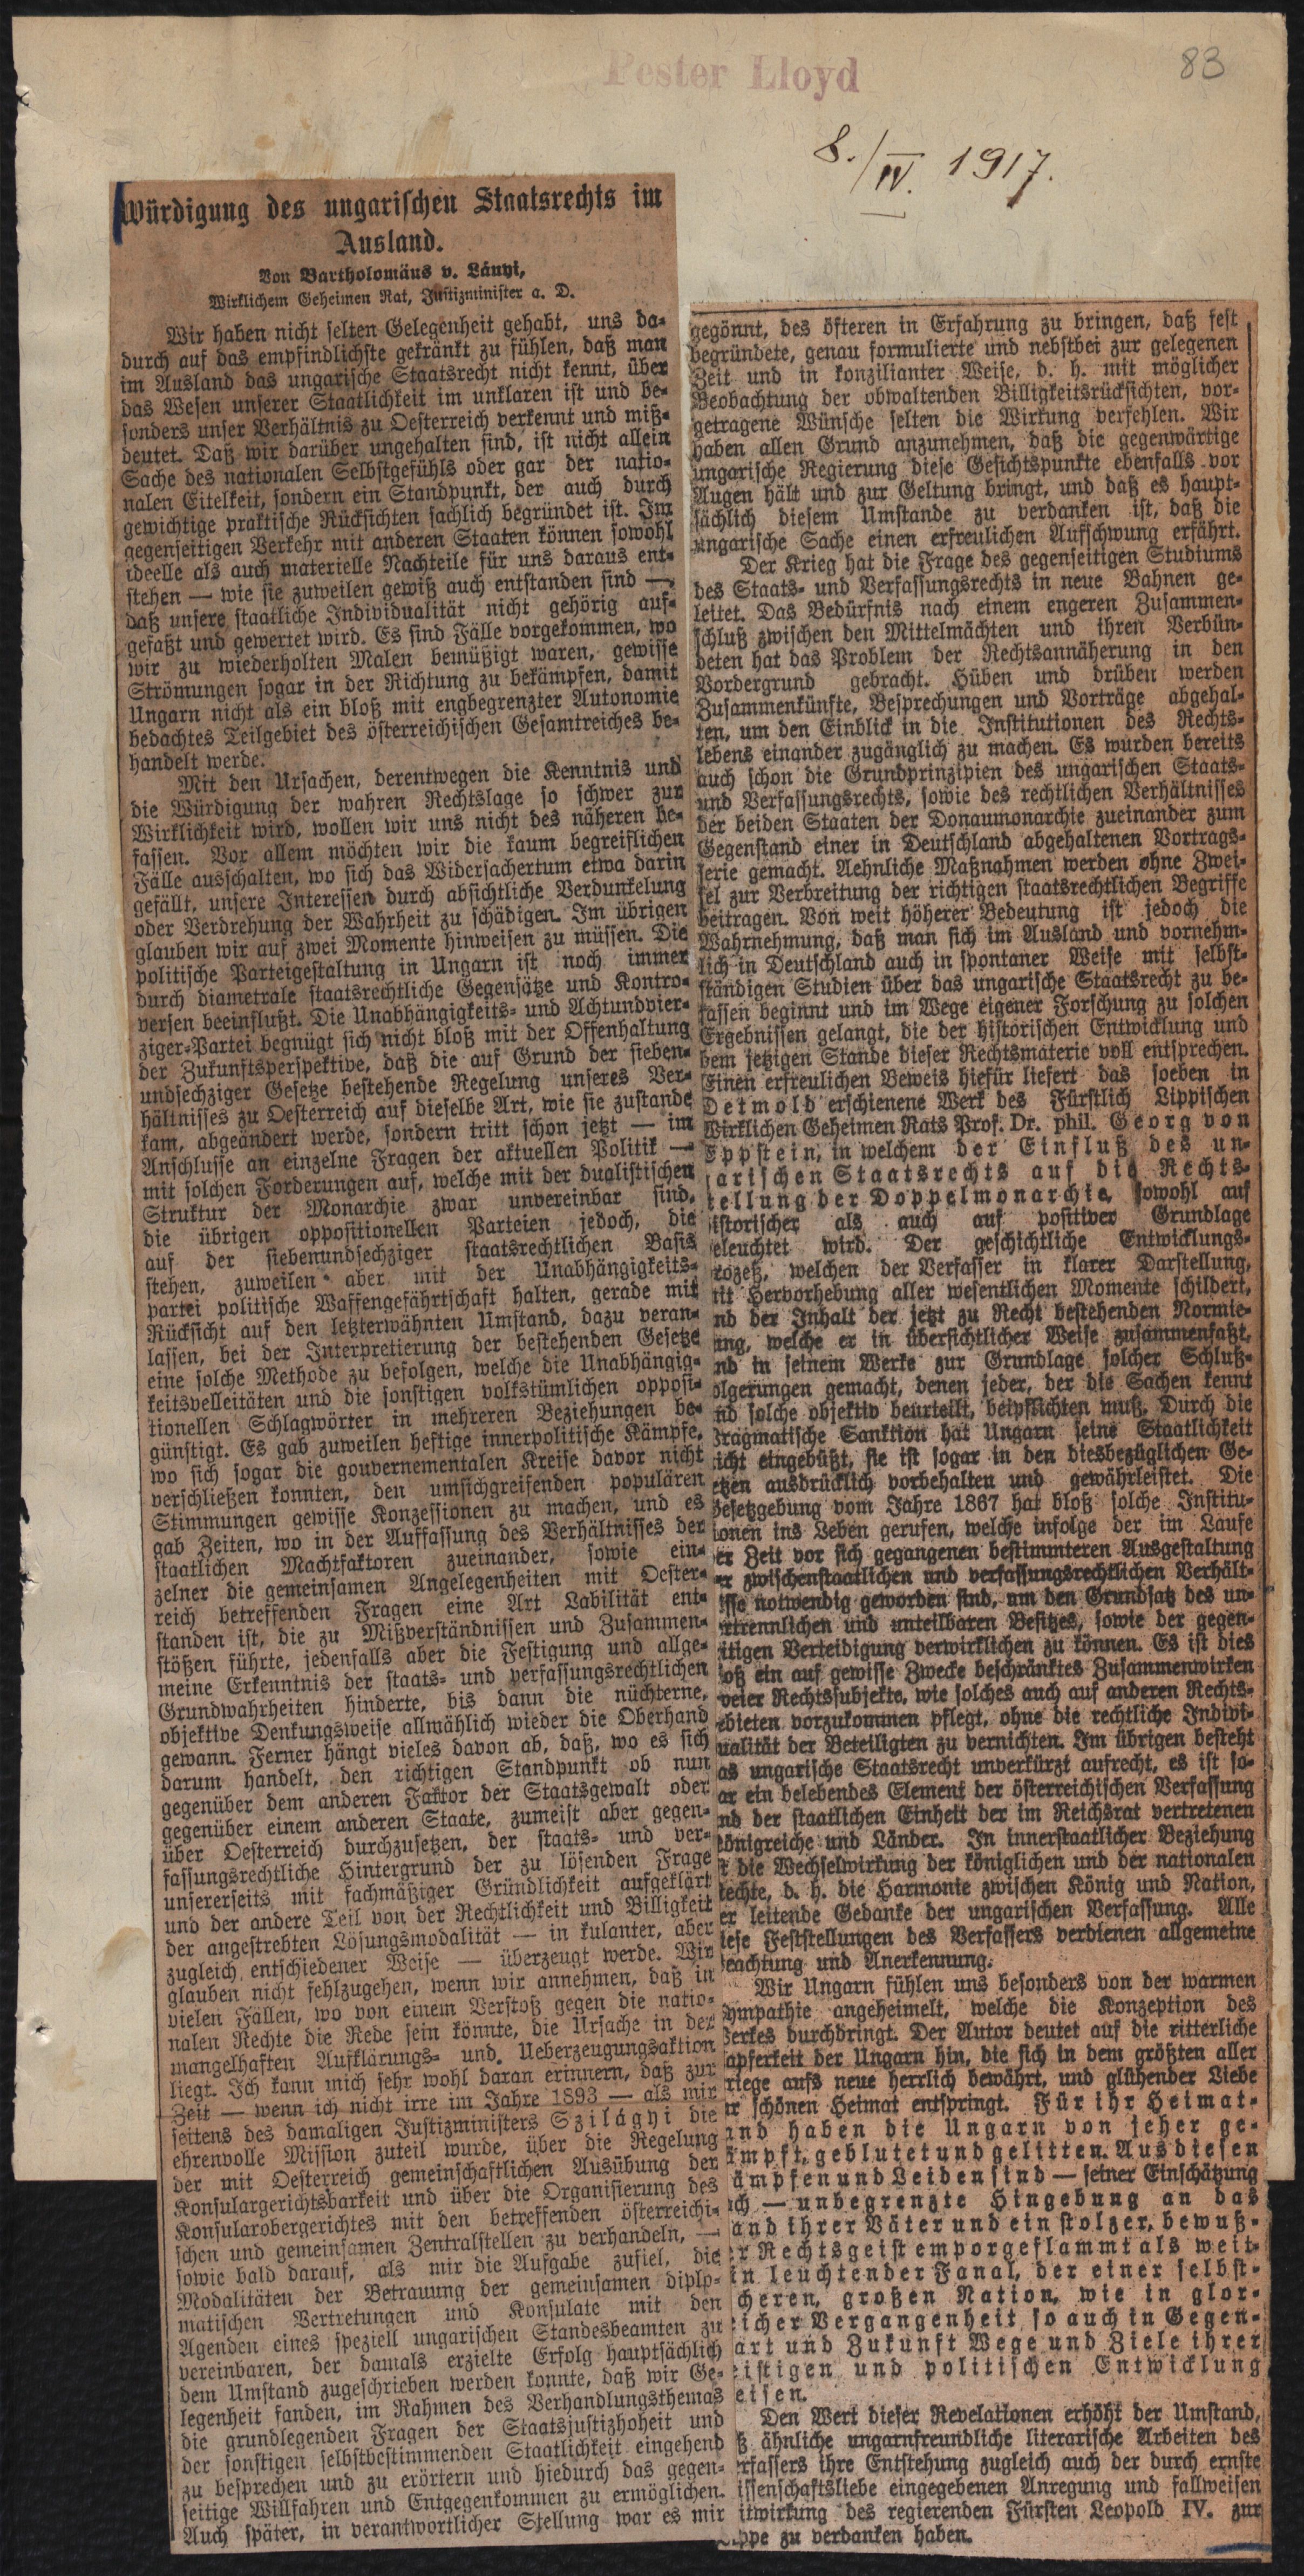 Pester Lloyd
83
8./IV. 1917.
Würdigung des ungarischen Staatsrechts im
Ausland.
Von Bartholomäus v. Lányi,
Wirklichem Geheimen Rat, Justizminister a. D.
Wir haben nicht selten Gelegenheit gehabt, uns da-
durch auf das empfindlichste gekränkt zu fühlen, daß man
im Ausland das ungarische Staatsrecht nicht kennt, über
das Wesen unserer Staatlichkeit im unklaren ist und be-
sonders unser Verhältnis zu Oesterreich verkennt und miß-
deutet. Daß wir darüber ungehalten sind, ist nicht allein
Sache des nationalen Selbstgefühls oder gar der natio-
nalen Eitelkeit, sondern ein Standpunkt, der auch durch
gewichtige praktische Rücksichten sachlich begründet ist. Im
gegenseitigen Verkehr mit anderen Staaten können sowohl
ideelle als auch materielle Nachteile für uns daraus ent-
stehen — wie sie zuweilen gewiß auch entstanden sind —,
daß unsere staatliche Individualität nicht gehörig auf-
gefaßt und gewertet wird. Es sind Fälle vorgekommen, wo
wir zu wiederholten Malen bemüßigt waren, gewisse
Strömungen sogar in der Richtung zu bekämpfen, damit
Ungarn nicht als ein bloß mit engbegrenzter Autonomie
bedachtes Teilgebiet des österreichischen Gesamtreiches be-
handelt werde.
Mit den Ursachen, derentwegen die Kenntnis und
die Würdigung der wahren Rechtslage so schwer zur
Wirklichkeit wird, wollen wir uns nicht des näheren be-
fassen. Vor allem möchten wir die kaum begreiflichen
Fälle ausschalten, wo sich das Widersachertum etwa darin
gefällt, unsere Interessen durch absichtliche Verdunkelung
oder Verdrehung der Wahrheit zu schädigen. Im übrigen
glauben wir auf zwei Momente hinweisen zu müssen. Die
politische Parteigestaltung in Ungarn ist noch immer
durch diametrale staatsrechtliche Gegensätze und Kontro-
versen beeinflußt. Die Unabhängigkeits- und Achtundvier-
ziger-Partei begnügt sich nicht bloß mit der Offenhaltung
der Zukunftsperspektive, daß die auf Grund der sieben-
undsechziger Gesetze bestehende Regelung unseres Ver-
hältnisses zu Oesterreich auf dieselbe Art, wie sie zustande
kam, abgeändert werde, sondern tritt schon jetzt — im
Anschlusse an einzelne Fragen der aktuellen Politik —
mit solchen Forderungen auf, welche mit der dualistischen
Struktur der Monarchie zwar unvereinbar sind,
die übrigen oppositionellen Parteien jedoch, die
auf der siebenundsechziger staatsrechtlichen Basis
stehen, zuweilen aber mit der Unabhängigkeits-
partei politische Waffengefährtschaft halten, gerade mit
Rücksicht auf den letzterwähnten Umstand, dazu veran-
lassen, bei der Interpretierung der bestehenden Gesetze
eine solche Methode zu befolgen, welche die Unabhängig-
keitsvelleitäten und die sonstigen volkstümlichen opposi-
tionellen Schlagwörter in mehreren Beziehungen be-
günstigt. Es gab zuweilen heftige innerpolitische Kämpfe,
wo sich sogar die gouvernementalen Kreise davor nicht
verschließen konnten, den umsichgreifenden populären
Stimmungen gewisse Konzessionen zu machen, und es
gab Zeiten, wo in der Auffassung des Verhältnisses der
staatlichen Machtfaktoren zueinander, sowie ein-
zelner die gemeinsamen Angelegenheiten mit Oester-
reich betreffenden Fragen eine Art Labilität ent-
standen ist, die zu Mißverständnissen und Zusammen-
stößen führte, jedenfalls aber die Festigung und allge-
meine Erkenntnis der staats- und verfassungsrechtlichen
Grundwahrheiten hinderte, bis dann die nüchterne,
objektive Denkungsweise allmählich wieder die Oberhand
gewann. Ferner hängt vieles davon ab, daß, wo es sich
darum handelt, den richtigen Standpunkt ob nun
gegenüber dem anderen Faktor der Staatsgewalt oder
gegenüber einem anderen Staate, zumeist aber gegen-
über Oesterreich durchzusetzen, der staats- und ver-
fassungsrechtliche Hintergrund der zu lösenden Frage
unsererseits mit fachmäßiger Gründlichkeit aufgeklärt
und der andere Teil von der Rechtlichkeit und Billigkeit
der angestrebten Lösungsmodalität — in kulanter, aber
zugleich entschiedener Weise — überzeugt werde. Wir
glauben nicht fehlzugehen, wenn wir annehmen, daß in
vielen Fällen, wo von einem Verstoß gegen die natio-
nalen Rechte die Rede sein könnte, die Ursache in der
mangelhaften Aufklärungs- und Ueberzeugungsaktion
liegt. Ich kann mich sehr wohl daran erinnern, daß zur
Zeit — wenn ich nicht irre im Jahre 1893 — als mir
seitens des damaligen Justizministers Szilágyi die
ehrenvolle Mission zuteil wurde, über die Regelung
der mit Oesterreich gemeinschaftlichen Ausübung der
Konsulargerichtsbarkeit und über die Organisierung des
Konsularobergerichtes mit den betreffenden österreichi-
schen und gemeinsamen Zentralstellen zu verhandeln, —
sowie bald darauf, als mir die Aufgabe zufiel, die
Modalitäten der Betrauung der gemeinsamen diplo-
matischen Vertretungen und Konsulate mit den
Agenden eines speziell ungarischen Standesbeamten zu
vereinbaren, der damals erzielte Erfolg hauptsächlich
dem Umstand zugeschrieben werden konnte, daß wir Ge-
legenheit fanden, im Rahmen des Verhandlungsthemas
die grundlegenden Fragen der Staatsjustizhoheit und
der sonstigen selbstbestimmenden Staatlichkeit eingehend
zu besprechen und zu erörtern und hiedurch das gegen-
seitige Willfahren und Entgegenkommen zu ermöglichen.
Auch später, in verantwortlicher Stellung war es mir
gegönnt, des öfteren in Erfahrung zu bringen, daß fest
begründete, genau formulierte und nebstbei zur gelegenen
Zeit und in konzilianter Weise, d. h. mit möglicher
Beobachtung der obwaltenden Billigkeitsrücksichten, vor-
getragene Wünsche selten die Wirkung verfehlen. Wir
haben allen Grund anzunehmen, daß die gegenwärtige
ungarische Regierung diese Gesichtspunkte ebenfalls vor
Augen hält und zur Geltung bringt, und daß es haupt-
sächlich diesem Umstande zu verdanken ist, daß die
ungarische Sache einen erfreulichen Aufschwung erfährt.
Der Krieg hat die Frage des gegenseitigen Studiums
des Staats- und Verfassungsrechts in neue Bahnen ge-
leitet. Das Bedürfnis nach einem engeren Zusammen-
schluß zwischen den Mittelmächten und ihren Verbün-
deten hat das Problem der Rechtsannäherung in den
Vordergrund gebracht. Hüben und drüben werden
Zusammenkünfte, Besprechungen und Vorträge abgehal-
ten, um den Einblick in die Institutionen des Rechts-
lebens einander zugänglich zu machen. Es wurden bereits
auch schon die Grundprinzipien des ungarischen Staats-
und Verfassungsrechts, sowie des rechtlichen Verhältnisses
der beiden Staaten der Donaumonarchie zueinander zum
Gegenstand einer in Deutschland abgehaltenen Vortrags-
serie gemacht. Aehnliche Maßnahmen werden ohne Zwei-
fel zur Verbreitung der richtigen staatsrechtlichen Begriffe
beitragen. Von weit höherer Bedeutung ist jedoch die
Wahrnehmung, daß man sich im Ausland und vornehm-
lich in Deutschland auch in spontaner Weise mit selbst-
ständigen Studien über das ungarische Staatsrecht zu be-
fassen beginnt und im Wege eigener Forschung zu solchen
Ergebnissen gelangt, die der historischen Entwicklung und
dem jetzigen Stande dieser Rechtsmaterie voll entsprechen.
Einen erfreulichen Beweis hiefür liefert das soeben in
Detmold erschienene Werk des Fürstlich Lippischen
Wirklichen Geheimen Rats Prof. Dr. phil. Georg von
Eppstein, in welchem der Einfluß des un-
garischen Staatsrechts auf die Rechts-
tellung der Doppelmonarchie, sowohl auf
istorischer als auch auf positiver Grundlage
eleuchtet wird. Der geschichtliche Entwicklungs-
rozeß, welchen der Verfasser in klarer Darstellung,
it Hervorhebung aller wesentlichen Momente schildert,
nd der Inhalt der jetzt zu Recht bestehenden Normie-
ung, welche er in übersichtlicher Weise zusammenfaßt,
nd in seinem Werke zur Grundlage solcher Schluß-
olgerungen gemacht, denen jeder, der die Sachen kennt
nd solche objektiv beurteilt, beipflichten muß. Durch die
Pragmatische Sanktion hat Ungarn seine Staatlichkeit
icht eingebüßt, sie ist sogar in den diesbezüglichen Ge-
etzen ausdrücklich vorbehalten und gewährleistet. Die
Gesetzgebung vom Jahre 1867 hat bloß solche Institu-
ionen ins Leben gerufen, welche infolge der im Laufe
er Zeit vor sich gegangenen bestimmteren Ausgestaltung
er zwischenstaatlichen und verfassungsrechtlichen Verhält-
isse notwendig geworden sind, um den Grundsatz des un-
ertrennlichen und unteilbaren Besitzes, sowie der gegen-
itigen Verteidigung verwirklichen zu können. Es ist dies
oß ein auf gewisse Zwecke beschränktes Zusammenwirken
veier Rechtssubjekte, wie solches auch auf anderen Rechts-
ebieten vorzukommen pflegt, ohne die rechtliche Indivi-
ualität der Beteiligten zu vernichten. Im übrigen besteht
as ungarische Staatsrecht unverkürzt aufrecht, es ist so-
ar ein belebendes Element der österreichischen Verfassung
nd der staatlichen Einheit der im Reichsrat vertretenen
Königreiche und Länder. In innerstaatlicher Beziehung
t die Wechselwirkung der königlichen und der nationalen
echte, d. h. die Harmonie zwischen König und Nation,
er leitende Gedanke der ungarischen Verfassung. Alle
iese Feststellungen des Verfassers verdienen allgemeine
eachtung und Anerkennung.
Wir Ungarn fühlen uns besonders von der warmen
ympathie angeheimelt, welche die Konzeption des
erkes durchdringt. Der Autor deutet auf die ritterliche
apferkeit der Ungarn hin, die sich in dem größten aller
riege aufs neue herrlich bewährt, und glühender Liebe
ur schönen Heimat entspringt. Für ihr Heimat-
and haben die Ungarn von jeher ge-
ämpft, geblutet und gelitten. Aus diesen
ämpfen und Leiden sind — seiner Einschätzung
ch — unbegrenzte Hingebung an das
and ihrer Väter und ein stolzer, bewuß-
er Rechtsgeist emporgeflammt als weit-
in leuchtender Fanal, der einer selbst-
cheren, großen Nation, wie in glor-
eicher Vergangenheit so auch in Gegen-
art und Zukunft Wege und Ziele ihrer
eistigen und politischen Entwicklung
eisen.
Den Wert dieser Revelationen erhöht der Umstand,
ß ähnliche ungarnfreundliche literarische Arbeiten des
erfassers ihre Entstehung zugleich auch der durch ernste
issenschaftsliebe eingegebenen Anregung und fallweisen
itwirkung des regierenden Fürsten Leopold IV. zur
ippe zu verdanken haben.